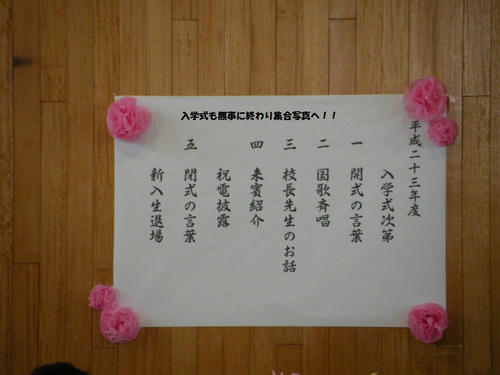 入学式も無事に終わり集合写真へ！！
平成二十三年度
入学式次第
一 開式の言葉
二 国歌斉唱
三 校長先生のお話
四 来賓紹介
祝電披露
五 閉式の言葉
新入生退場